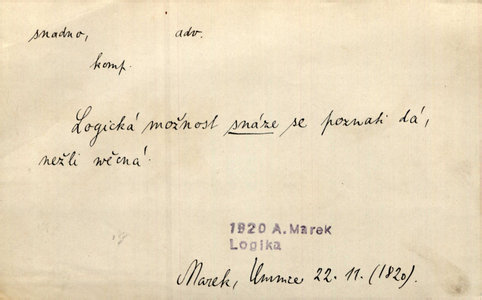 snadno, adv.
komp.
Logická možnost snáze se poznati dá,
nežli wěcná.
1820 A. Marek
Logika
Marek, Ummce 22. 11. (1820).